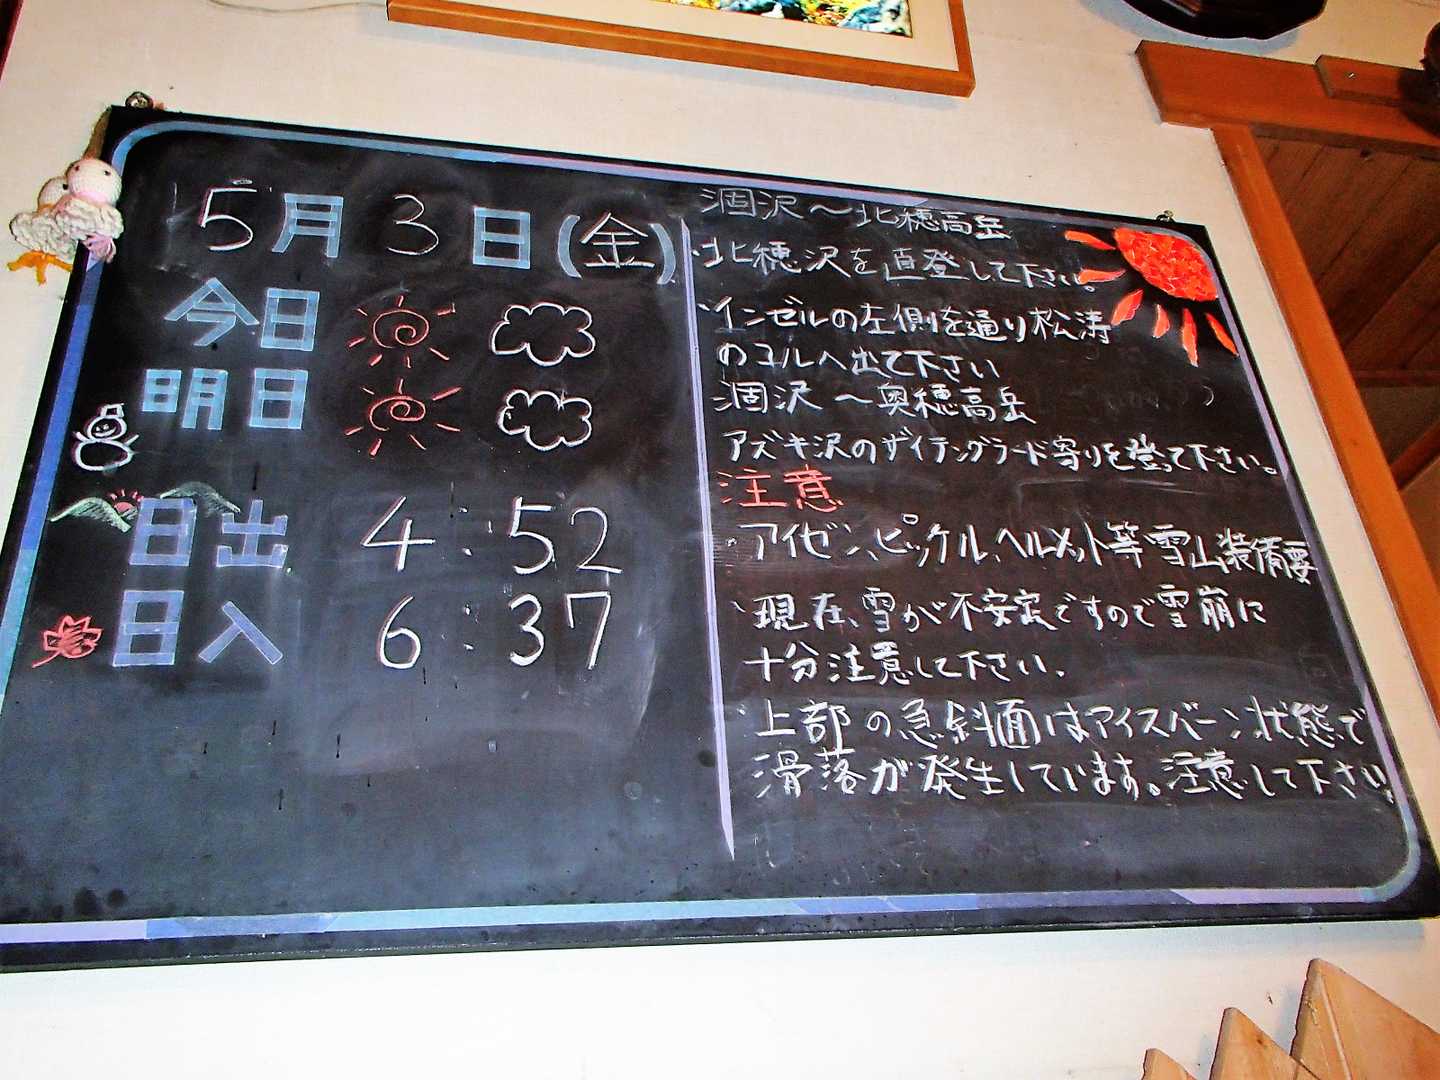 5月3日(金)
今日
明日
日出 4:52
日入 6:37
涸沢〜北穂高岳
・北穂沢を直登して下さい。
・インゼルの左側を通り松涛
のコルへ出て下さい
涸沢〜奥穂高岳
アズキ沢のザイテングラード寄りを登って下さい。
注意
・アイゼン、ピッケル、ヘルメット等雪山装備要
・現在、雪が不安定ですので雪崩に
十分注意して下さい.
・上部の急斜面はアイスバーン状態で
滑落が発生しています。注意して下さい。